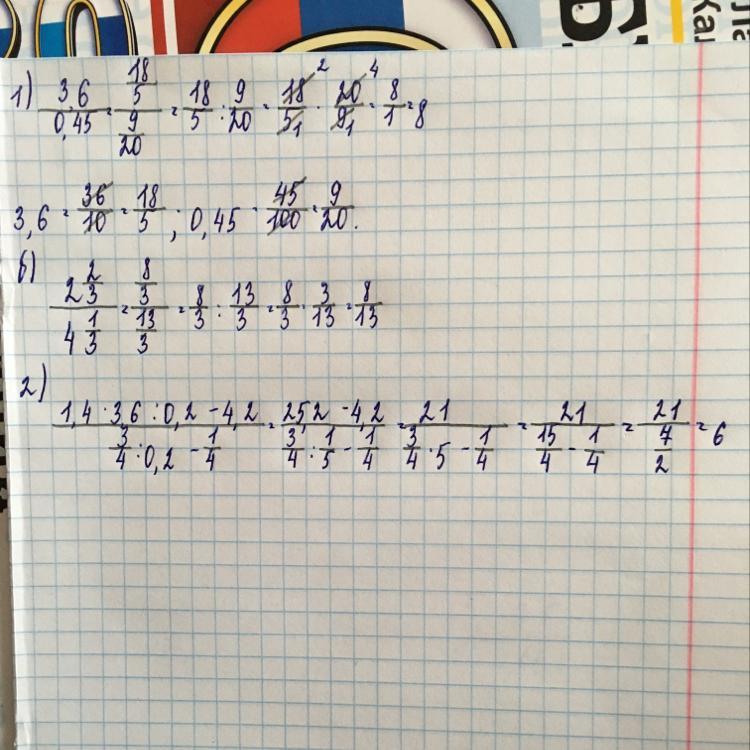 20 Б Ла
Кал
1) 3,6/0,45 = (18/5)/(9/20) = 18/5 : 9/20 = 18/5 1 · 20/9 1 2 4 = 8/1 = 8
3,6 = 36/10 = 18/5 ; 0,45 = 45/100 = 9/20.
б) (2 2/3)/(4 1/3) = (8/3)/(13/3) = 8/3 : 13/3 = 8/3 · 3/13 = 8/13
2) (1,4 · 3,6 : 0,2 - 4,2)/(3/4 : 0,2 - 1/4) = (25,2 - 4,2)/(3/4 : 1/5 - 1/4) = 21/(3/4 · 5 - 1/4) = 21/(15/4 - 1/4) = 21/(7/2) = 6